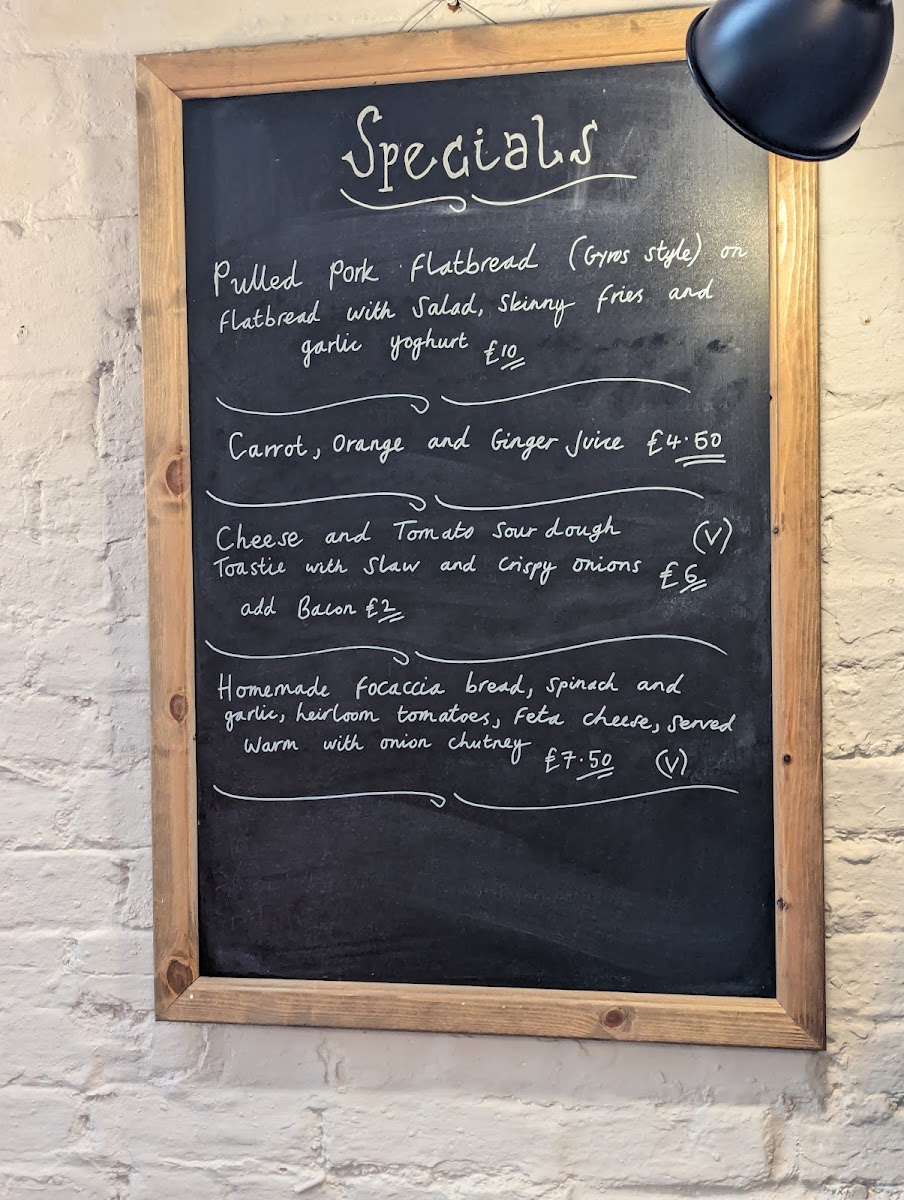 Specials
Pulled Pork Flatbread (Gyros style) on
flatbread with Salad, Skinny fries and
garlic yoghurt £10
Carrot, Orange and Ginger Juice £4.50
Cheese and Tomato Sourdough (V)
Toastie with Slaw and crispy onions £6
add Bacon £2
Homemade focaccia bread, spinach and
garlic, heirloom tomatoes, Feta cheese, served
warm with onion chutney £7.50 (V)